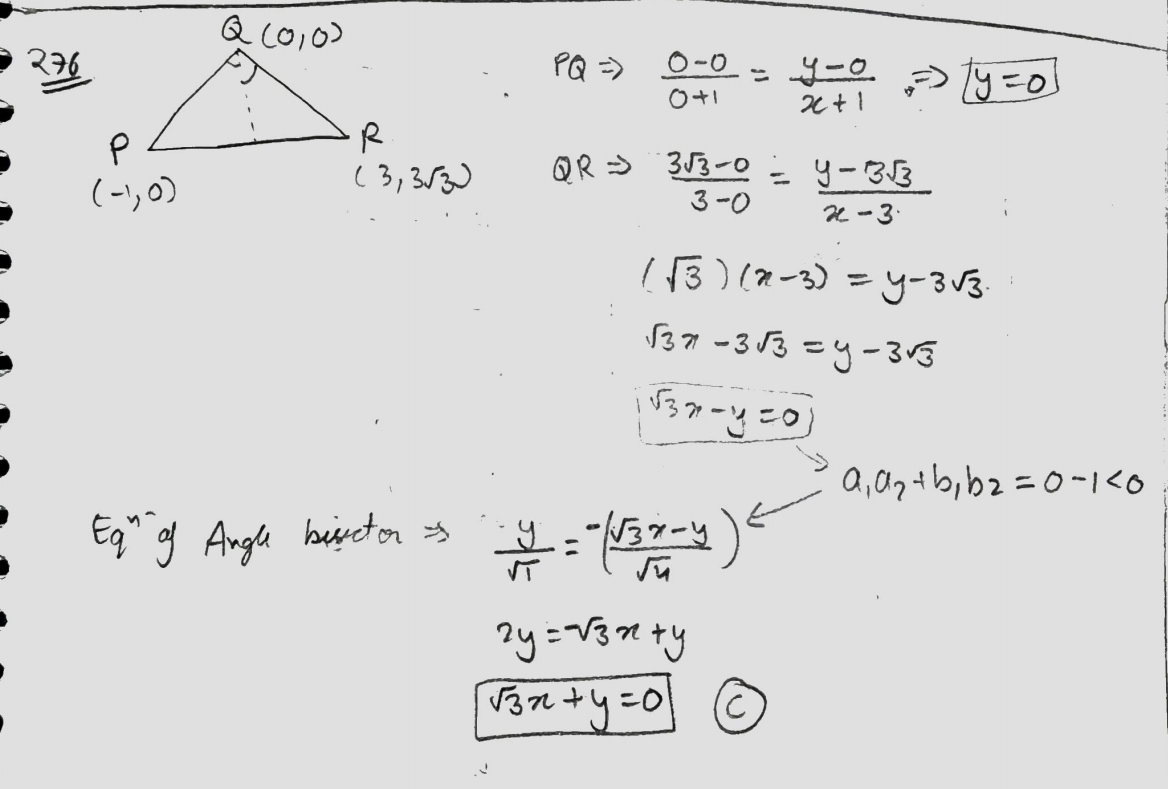 276
Q (0,0)
P
(-1,0)
R
(3,3√3)
PQ ⇒ (0-0)/(0+1) = (y-0)/(x+1) ⇒ y=0
QR ⇒ (3√3-0)/(3-0) = (y-3√3)/(x-3)
(√3)(x-3) = y-3√3
√3x-3√3 = y-3√3
√3x-y=0
a₁a₂+b₁b₂=0-1<0
Eqⁿ of Angle bisector ⇒ y/√1 = -((√3x-y)/√4)
2y=-√3x+y
√3x+y=0 (C)